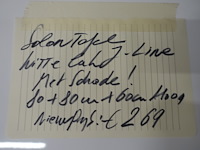 Salontafel J-Line
Witte Lak
Met Schade!
80 x 80 cm x 60cm Hoog
Nieuwprijs: € 269